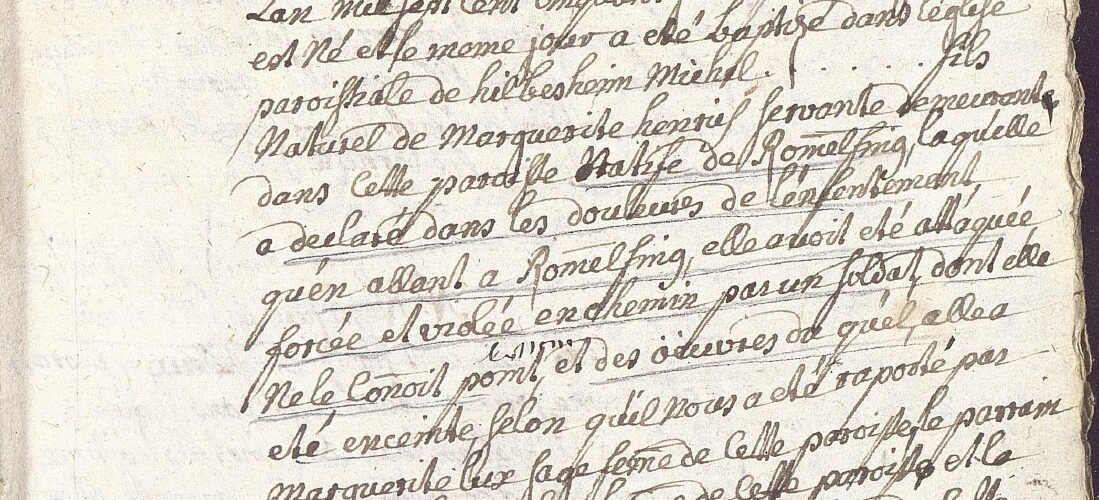 Lan mil sept cent
est Né et le meme jour a eté baptizé dans léglise
paroissiale de hilbesheim Michel . . . . . . fils
Naturel de Marguerite henris servante demeurante
dans cette paroisse Natife de Romelfing, laquelle
a declaré dans les douleures de lenfentement
quén allant a Romelfing, elle avoit eté attáquée,
forcée et violée en chemin par un soldat, dont elle
Ne le Connoit point, et des oeuvres du quél, elle a
eté enceinte, selon quil Nous a eté raporté par
Marguerite lux sage feme de Cette paroisse, le parrain
de cette paroisse et la